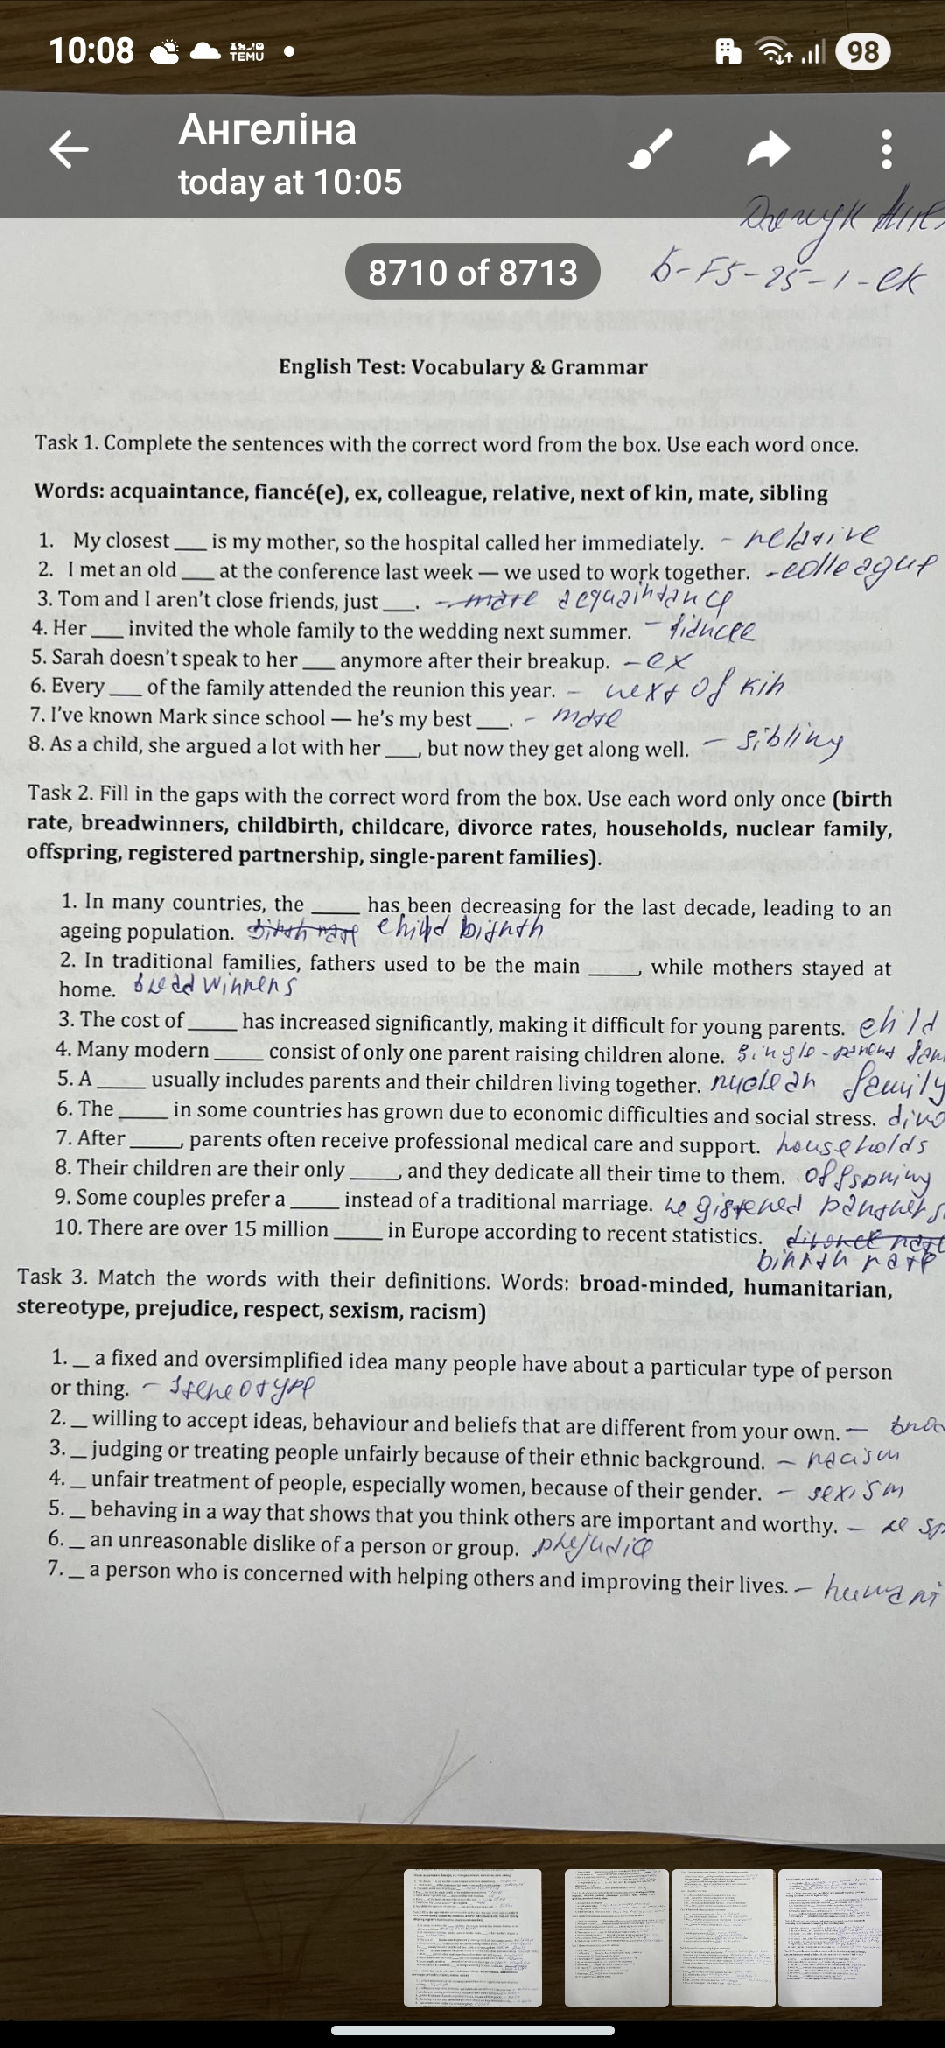 10:08
TEMU
98
Ангеліна
today at 10:05
8710 of 8713
Б-F5-25-1-ek
English Test: Vocabulary & Grammar
Task 1. Complete the sentences with the correct word from the box. Use each word once.
Words: acquaintance, fiancé(e), ex, colleague, relative, next of kin, mate, sibling
1. My closest ___ is my mother, so the hospital called her immediately. - relative
2. I met an old ___ at the conference last week — we used to work together. - colleague
3. Tom and I aren't close friends, just ___. - mate acquaintance
4. Her ___ invited the whole family to the wedding next summer. - fiancee
5. Sarah doesn't speak to her ___ anymore after their breakup. - ex
6. Every ___ of the family attended the reunion this year. - next of kin
7. I've known Mark since school — he's my best ___. - mate
8. As a child, she argued a lot with her ___, but now they get along well. - sibling
Task 2. Fill in the gaps with the correct word from the box. Use each word only once (birth
rate, breadwinners, childbirth, childcare, divorce rates, households, nuclear family,
offspring, registered partnership, single-parent families).
1. In many countries, the ___ has been decreasing for the last decade, leading to an
ageing population. birth rate child birth
2. In traditional families, fathers used to be the main ___, while mothers stayed at
home. breadwinners
3. The cost of ___ has increased significantly, making it difficult for young parents. child
4. Many modern ___ consist of only one parent raising children alone. single-parent fam
5. A ___ usually includes parents and their children living together. nuclear family
6. The ___ in some countries has grown due to economic difficulties and social stress. divo
7. After ___, parents often receive professional medical care and support. households
8. Their children are their only ___, and they dedicate all their time to them. offspring
9. Some couples prefer a ___ instead of a traditional marriage. registered partners
10. There are over 15 million ___ in Europe according to recent statistics. divorce rate
birth rate
Task 3. Match the words with their definitions. Words: broad-minded, humanitarian,
stereotype, prejudice, respect, sexism, racism)
1. _ a fixed and oversimplified idea many people have about a particular type of person
or thing. - stereotype
2. _ willing to accept ideas, behaviour and beliefs that are different from your own. - broa
3. _ judging or treating people unfairly because of their ethnic background. - racism
4. _ unfair treatment of people, especially women, because of their gender. - sexism
5. _ behaving in a way that shows that you think others are important and worthy. - resp
6. _ an unreasonable dislike of a person or group. prejudice
7. _ a person who is concerned with helping others and improving their lives. - humani